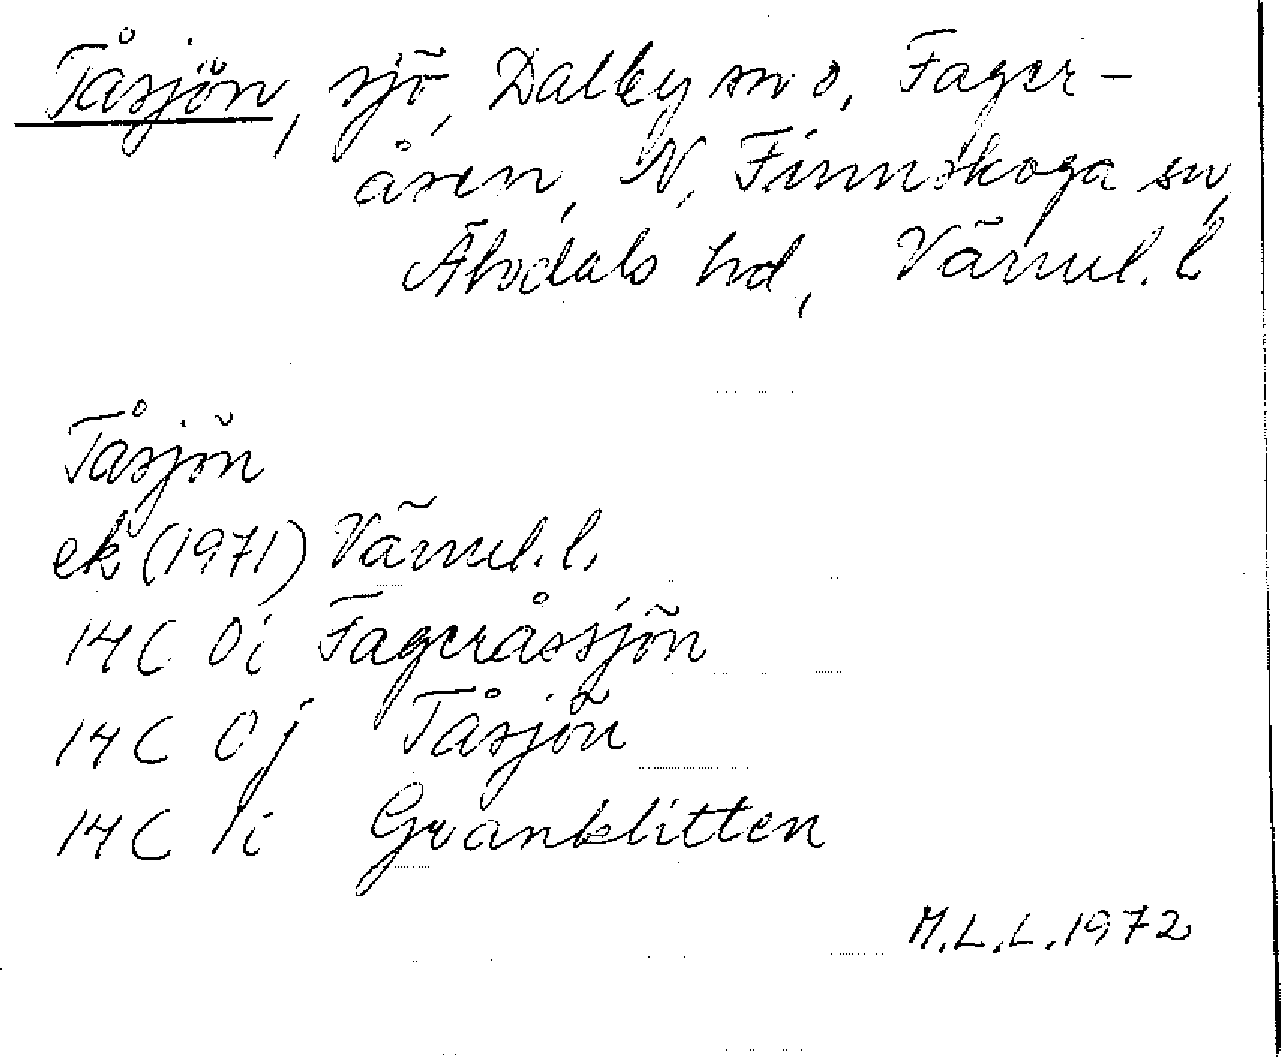 Tåsjön, sjö, Dalby sn o. Fager-
åsen, N. Finnskoga sn,
Älvdals hd, Värml. l
Tåsjön
ek (1971) Värml. l.
14C 0i Fageråssjön
14C 0j Tåsjön
14C 1i Granklitten
M.L.L. 1972